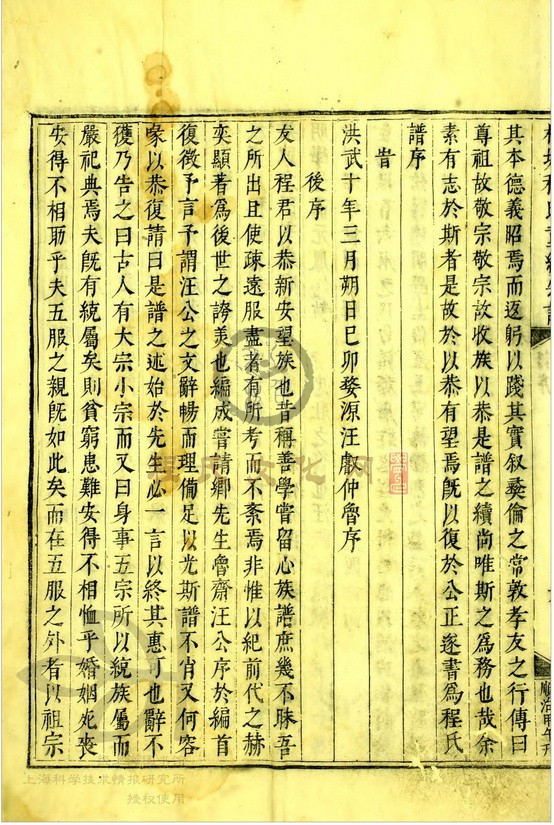 其本德義昭焉而返躬以踐其實叙彞倫之常敦孝友之行傳曰
尊祖故敬宗敬宗故收族以恭是譜之續尚唯斯之爲務也哉余
素有志於斯者是故於以恭有望焉旣以復於公正逐書爲程氏
譜序
旹
洪武十年三月朔日巳卯婺源汪叡仲魯序
後序
友人程君以恭新安望族也昔稱善學嘗留心族譜庶幾不昧吾
之所出且使疎遠服盡者有所考而不紊焉非惟以紀前代之赫
奕顯著爲後世之誇美也編成嘗請鄉先生魯齋汪公序於編首
復徵予言予謂汪公之文辭暢而理備足以光斯譜不肖又何容
喙以恭復請曰是譜之述始於先生必一言以終其惠可也辭不
獲乃告之曰古人有大宗小宗而又曰身事五宗所以統族屬而
嚴祀典焉夫旣有統屬矣則貧窮患難安得不相恤乎婚姻死喪
安得不相聏乎夫五服之親旣如此矣而在五服之外者以祖宗
順治甲午刊
上海科学技术情报研究所
授权使用